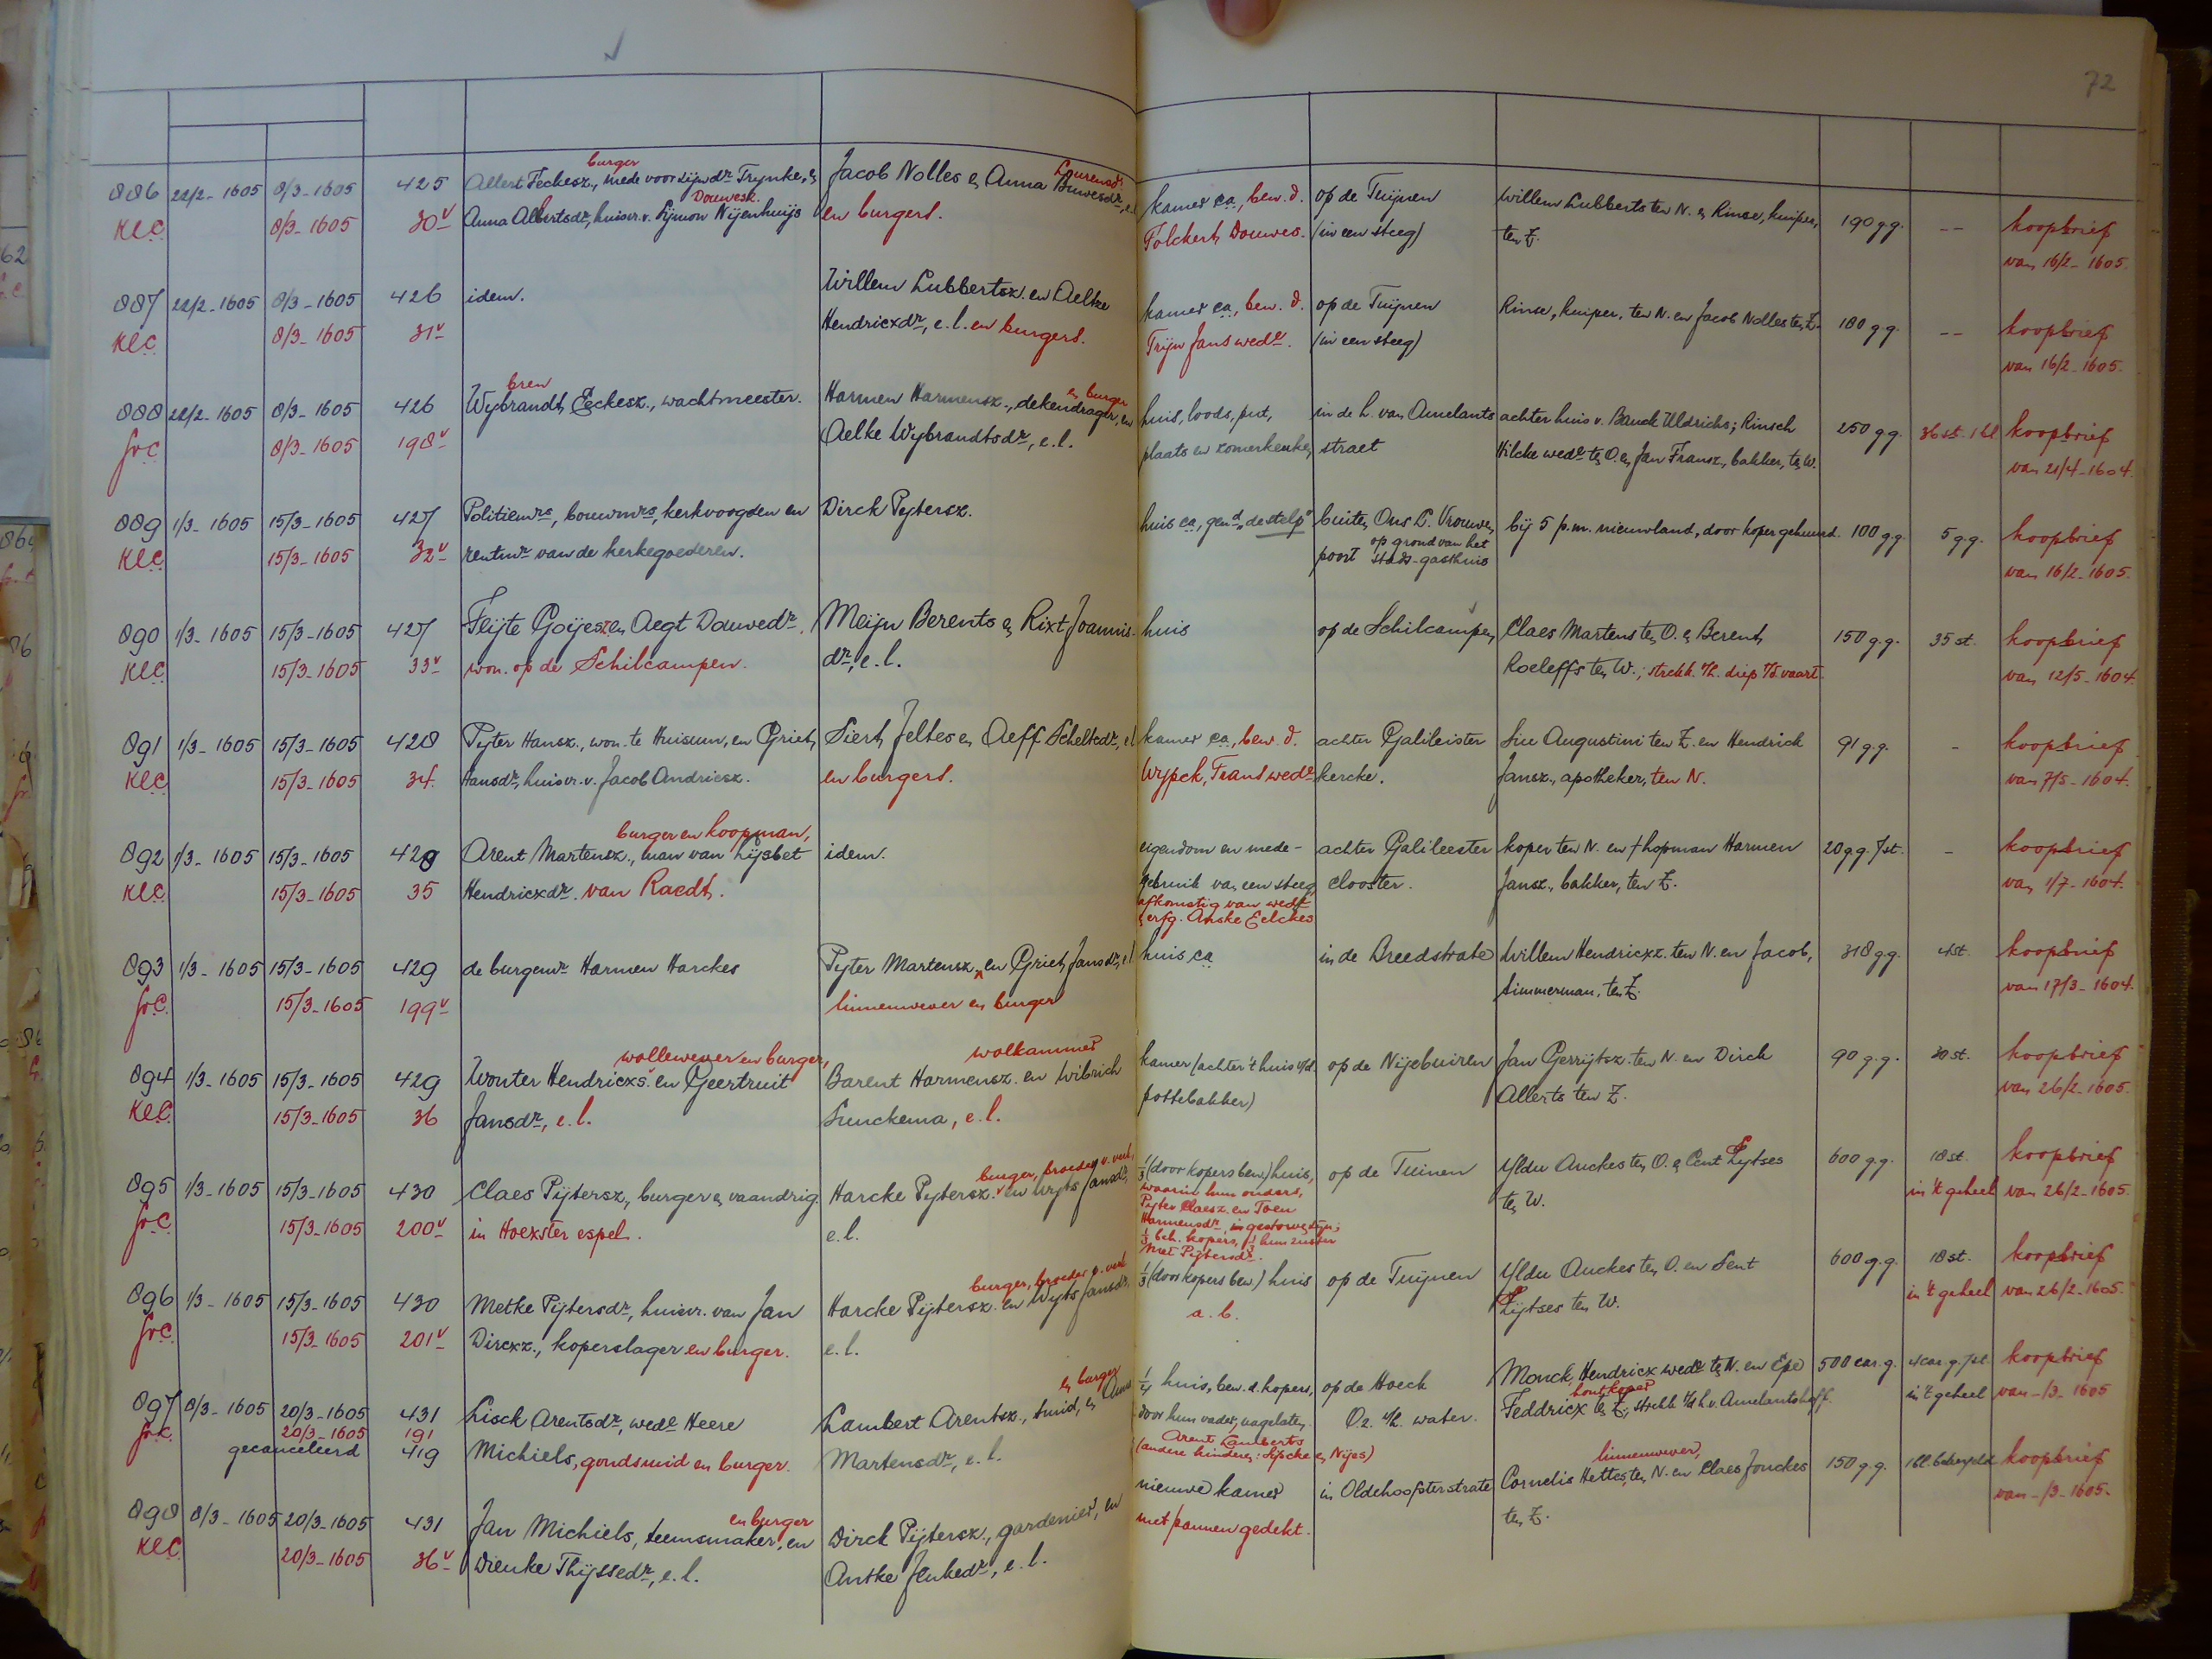 72
886 22/2-1605 8/3-1605 425 Allert Feckesz., burger mede voor zijn dr. Trynke, en Jacob Nolles en Anna Lourensdr. Buwesdr., e.l. kamer ca, bew. d. op de Tuijnen Willem Lubberts ten N. en Rinse, kuiper, 190 g.g. -- koopbrief
KLC 8/3-1605 30v Anna Albertsdr., huisvr. v. Sijmon Douwesz. Nijenhuijs en burgers. Folckert Douwes. (in een steeg) ten Z. van 16/2-1605.
887 22/2-1605 8/3-1605 426 idem. Willem Lubbertsz. en Aelke kamer ca, bew. d. op de Tuijnen Rinse, kuiper, ten N. en Jacob Nolles ten Z. 180 g.g. -- koopbrief
KLC 8/3-1605 31v Hendricxdr., e.l. en burgers. Trijn Jans wedr. (in een steeg) van 16/2-1605.
888 22/2-1605 8/3-1605 426 Wybrandt Eeckesz., wachtmeester. Harmen Harmensz., dekendrager, en burger en huis, loods, put, in de h. van Amelants achter huis v. Bauck Uldrichs; Rinsch 250 g.g. 36 st. 1 bl koopbrief
GrC 8/3-1605 198v Aelke Wybrandtsdr., e.l. plaats en zomerkeuken straet Hilcke wedr. ten O. en Jan Fransz., bakker, ten W. van 21/4-1604.
889 1/3-1605 15/3-1605 427 Politiemrs, bouwmrs, kerkvoogden en Dirck Pytersz. huis ca, gend. "de stelp" buiten Ons L. Vrouwen bij 5 p.m. nieuwland, door koper gehuurd. 100 g.g. 5 g.g. koopbrief
KLC 15/3-1605 32v rentmr. van de kerkegoederen. poort op grond van het Stads-gasthuis van 16/2-1605.
890 1/3-1605 15/3-1605 427 Feijte Goijesz. en Aegt Douwedr. Meijn Berents en Rixt Joannis- huis op de Schilcampen Claes Martens ten O. en Berent 150 g.g. 35 st. koopbrief
KLC 15/3-1605 33v won. op de Schilcampen. dr., e.l. Roeleffs ten W.; strekk. t/h. diep t/d. vaart. van 12/5-1604.
891 1/3-1605 15/3-1605 428 Pyter Hansz., won. te Huisum, en Griet Siert Jeltes en Aeff Scheltedr., e.l. kamer ca, bew. d. achter Galileister Siu Augustini ten Z. en Hendrick 91 g.g. - koopbrief
KLC 15/3-1605 34. Hansdr., huisvr. v. Jacob Andriesz. en burgers. Wypck, Frans wedr. kercke. Jansz., apotheker, ten N. van 7/5-1604.
892 1/3-1605 15/3-1605 429 Arent Martensz., burger en koopman, man van Lijsbet idem. eigendom en mede- achter Galileester koper ten N. en † hopman Harmen 20 g.g. 7 st. - koopbrief
KLC 15/3-1605 35 Hendricxdr. van Raedt. gebruik van een steeg clooster. Jansz., bakker, ten Z. van 1/7-1604.
afkomstig van wede
& erfg. Anske Eelckes
893 1/3-1605 15/3-1605 429 de burgemr. Harmen Harckes Pyter Martensz. en Griet Jansdr., e.l. huis ca in de Breedstrate Willem Hendricxz. ten N. en Jacob, 318 g.g. 4 st. koopbrief
GrC. 15/3-1605 199v linnenwever en burger timmerman, ten Z. van 17/3-1604.
894 1/3-1605 15/3-1605 429 Wouter Hendricxs. wollewever en burger, en Geertruit Barent Harmensz. wolkammer en Wibrich kamer (achter 't huis v/d. op de Nijebuiren Jan Gerrijtsz. ten N. en Dirck 90 g.g. 30 st. koopbrief
KLC 15/3-1605 36 Jansdr., e.l. Sunckema, e.l. pottebakker) Allerts ten Z. van 26/2-1605.
895 1/3-1605 15/3-1605 430 Claes Pijtersz., burger en vaandrig Harcke Pytersz. burger, broeder v. verk. en Wyts Jansdr., 1/3 (door kopers bew.) huis, op de Tuinen Yldu Auckes ten O. en Cent Lytses 600 g.g. 18 st. koopbrief
GrC 15/3-1605 200v in Hoexster espel. e.l. waarin hun ouders, ten W. in 't geheel van 26/2-1605.
Pyter Claesz. en Toen
Harmensdr. in gestorven zijn;
1/3 beh. kopers, 1/3 hun zuster
Met Pijtersdr.
896 1/3-1605 15/3-1605 430 Metke Pijtersdr., huisvr. van Jan Harcke Pijtersz. burger, broeder v. verk. en Wyts Jansdr., 1/3 (door kopers bew.) huis op de Tuijnen Yldu Auckes ten O. en Sent 600 g.g. 18 st. koopbrief
GrC. 15/3-1605 201v Dircxz., koperslager en burger. e.l. a.b. Lijtses ten W. in 't geheel van 26/2-1605.
897 8/3-1605 20/3-1605 431 Lisck Arentsdr., wede Heere Lambert Arentsz., smid, en burger en Anna 1/4 huis, bew. d. kopers, op de Hoeck Monck Hendricx wedr. ten N. en Epe 500 car. g. 4 car. g. 7 st. koopbrief
GrC. 20/3-1605 191 door hun vader, nagelaten, Oz. t/h. water. Feddricx houtkoper ten Z., strekk. t/d. h. v. Amelantshoff. in 't geheel van -/3-1605
gecancelleerd 419 Michiels, goudsmid en burger. Martensdr., e.l. Arent Lamberts
(andere kinderen: Sipcke en Nijes)
898 8/3-1605 20/3-1605 431 Jan Michiels, teemsmaker, en burger en Dirck Pijtersz., gardenier, en nieuwe kamer in Oldehoofsterstrate Cornelis Hettes, linnenwever, ten N. en Claes Jouckes 150 g.g. 1 bl. bebeyeld koopbrief
KLC 20/3-1605 36v Dienke Thijssedr., e.l. Antke Jenkedr., e.l. met pannen gedekt. ten Z. van -/3-1605.